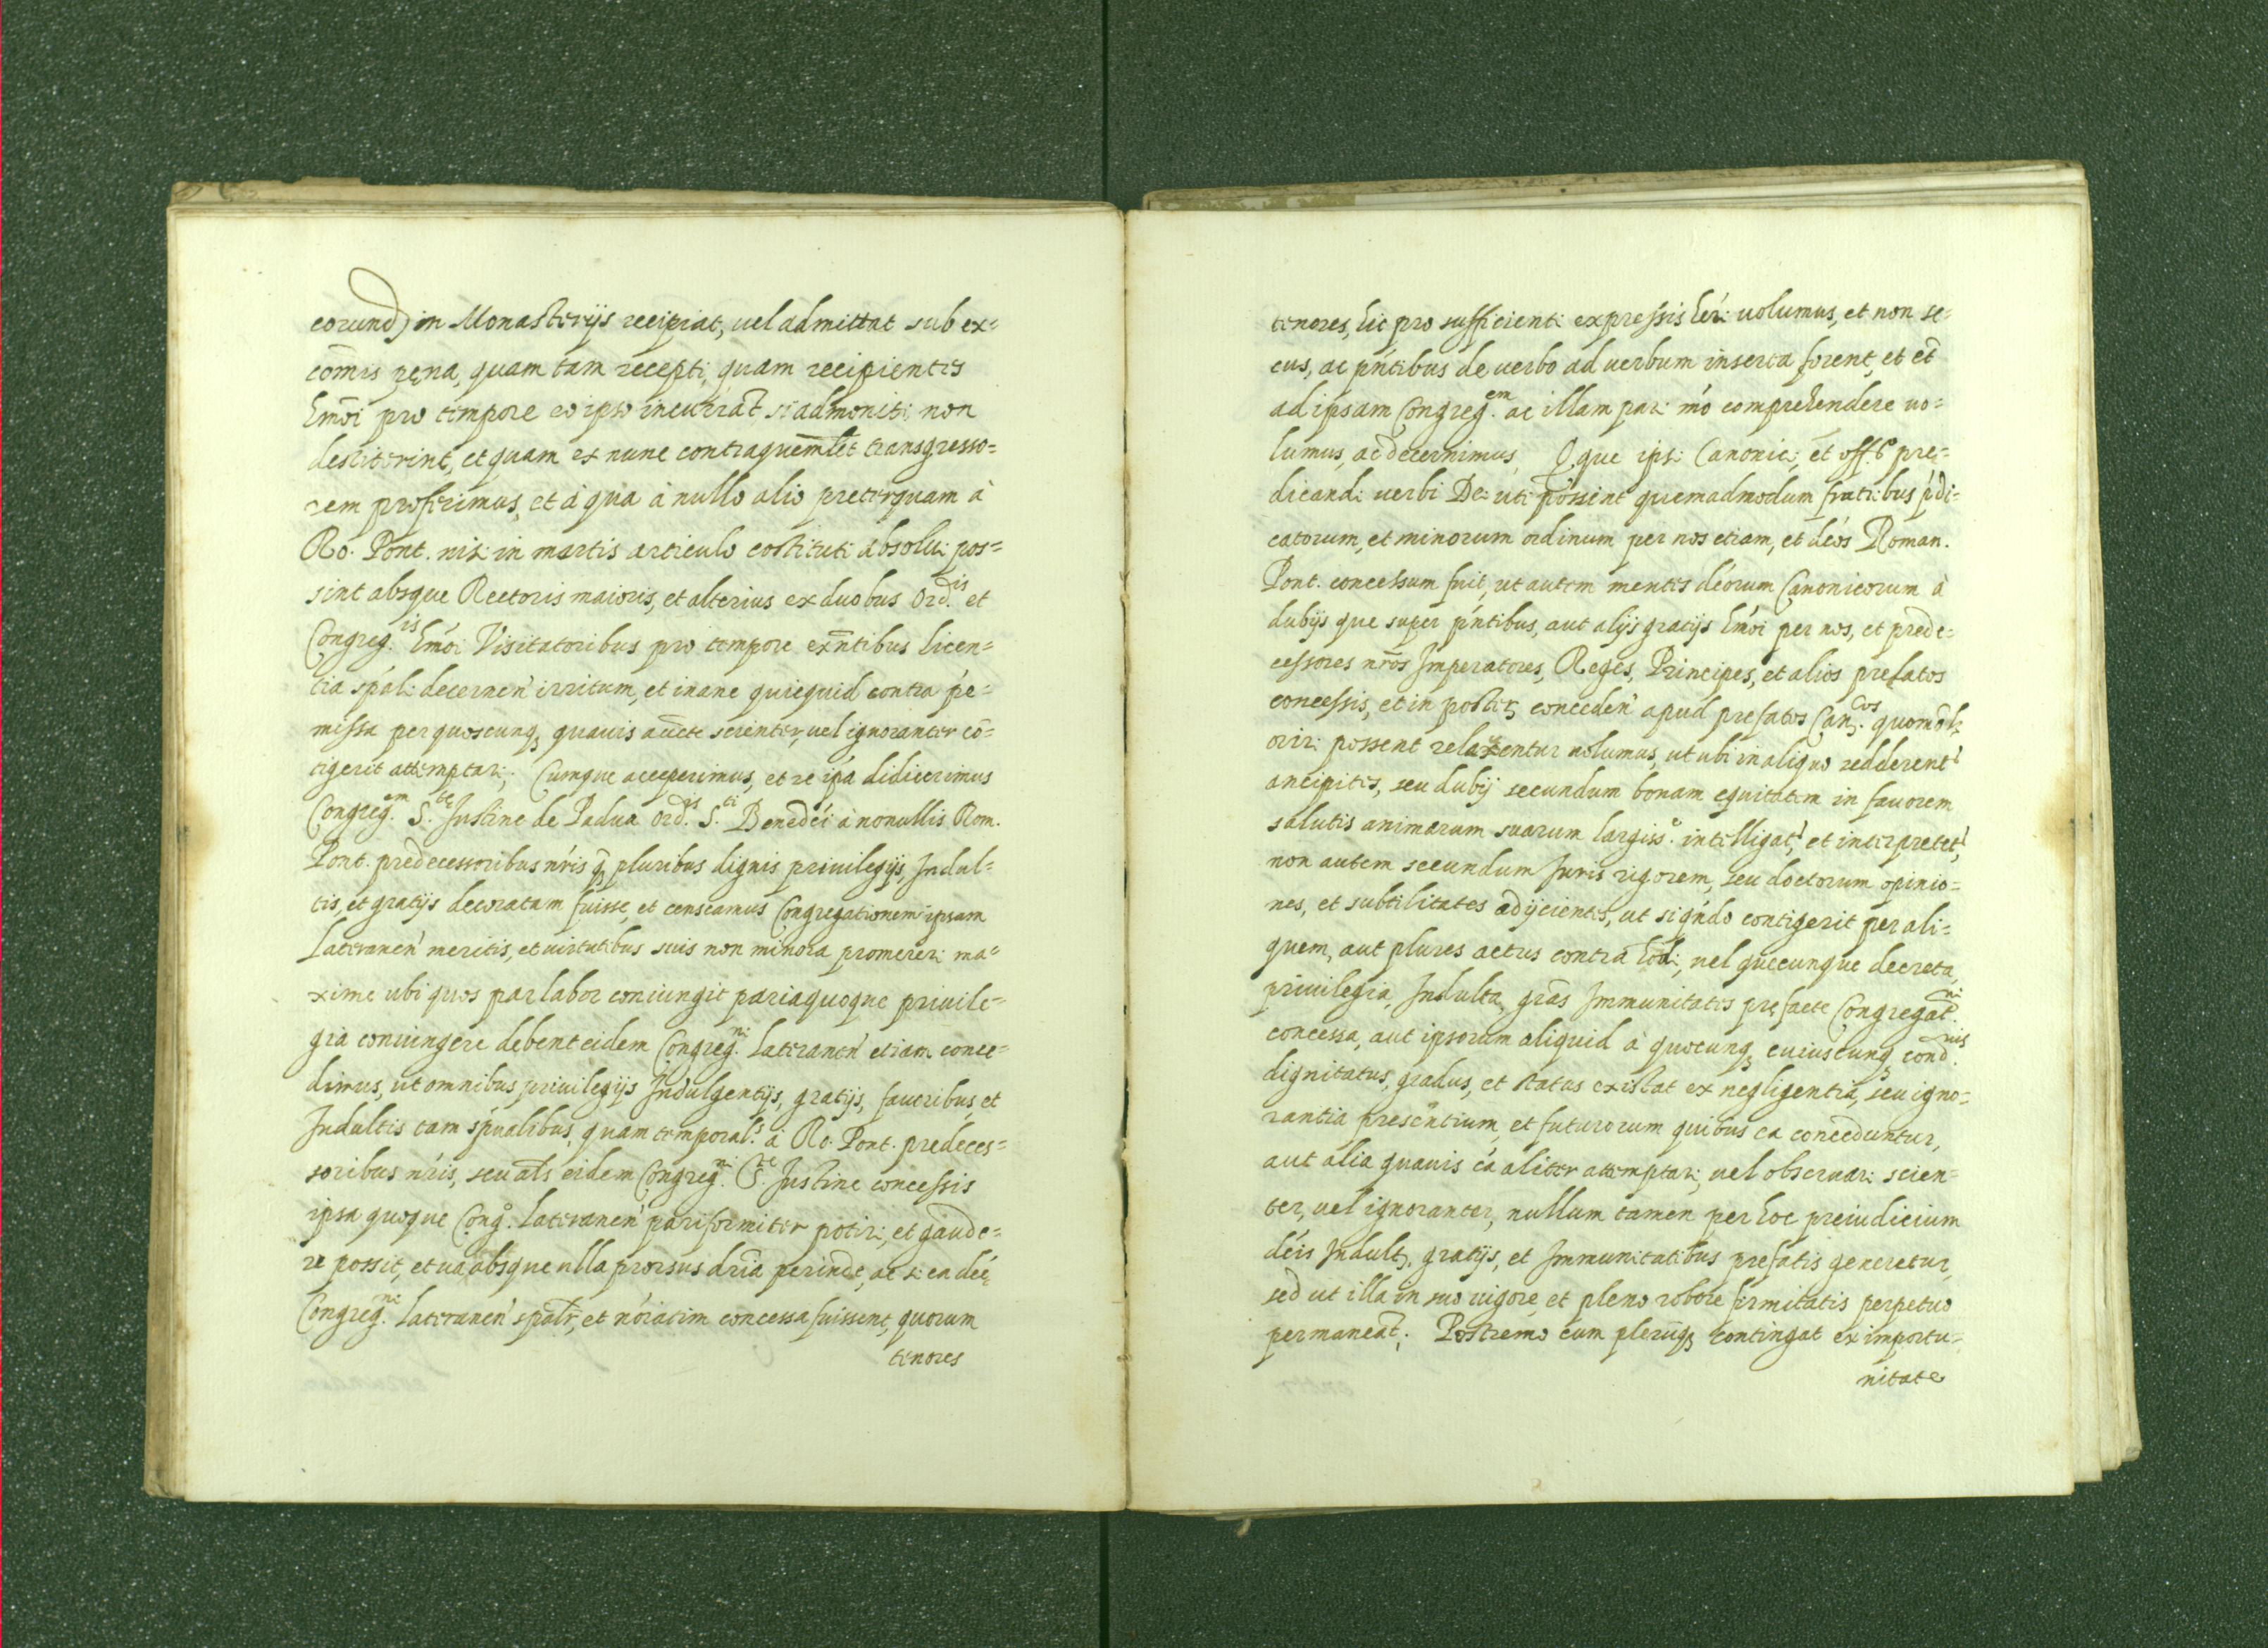 eorund) in Monasterijs recipiat, uel admittat sub ex=
com̄is pęna, quam tam recepti, quam recipientes
hm̄oi pro tempore eo ipso incurrāt, si admoniti non
destiterint, et quam ex nunc contra quemlēt transgresso=
rem proferimus, et à qua à nullo alio preterquam à
Ro. Pont. nisi in mortis articulo cōstituti absolui pos=
sint absque Rectoris maioris, et alterius ex duobus Ord.is et
Congreg.is hm̄oi Visitatoribus pro tempore exn̄tibus licen=
tia spāli decernen' irritum, et inane quicquid contra ṕe=
missa per quoscunq; quauis auc̄te scienter, uel ignoranter cō=
tigerit attemptari; Cumque acceperimus, et re ipa didicerimus
Congreg.em S.te Justine de Padua ord.is S.ti Benedci à nonullis Rom.
Pont. predecessoribus nŕis q̄ pluribus dignis priuilegijs, Indul=
tis, et gratijs decoratam fuisse, et censeamus Congregationem ipsam
Lateranen' meritis, et uirtutibus suis non minora promereri ma=
xime ubi quos par labor coniungit paria quoque priuile=
gia coniungere debent eidem Congreg.ni Lateranen' etiam conce=
dimus, ut omnibus priuilegijs Indulgentijs, gratijs, fauoribus, et
Indultis tam spúalibus, quam temporal.s à Ro. Pont. predeces=
soribus nŕis, seu als eidem Congreg.ni S.te Justine concessis
ipsa quoque Cong.o Lateranen' pariformiter potiri, et gaude=
re possit, et ual absque ulla prorsus dr̄ia perinde, ac si ea dcę
Congreg.ni Lateranen' spalr, et nóiatim concessa fuissent, quorum
tenores
tenores, hic pro sufficienti expressis heri uolumus, et non se=
cus, ac pńtibus de uerbo ad uerbum inserta forent, et et̄
ad ipsam Congreg.em ac illam pari mó comprehendere uo=
lumus, ac decernimus, Q que ipsi Canonici, et off.o pre=
dicandi uerbi Dei uti possint quemadmodum fratribus pdi=
catorum, et minorum ordinum per nos etiam, et dcos Roman.
Pont. concessum fuit, ut autem mentes dcorum Canonicorum à
dubijs que super pńtibus, aut alijs gratijs hm̄oi per nos, et prede=
cessores nr̄os Imperatores, Reges, Principes, et alios prefatos
concessis, et in poster; conceden' apud prefatos Can.cos quomōl;
oriri possent relaxentur uolumus, ut ubi in aliquo redderent'
ancipites, seu dubij secundum bonam equitatem in fauorem
salutis animarum suarum largiss.e intelligat', et interpretet',
non autem secundum Juris rigorem, seu doctorum opinio=
nes, et subtilitates adijcientes, ut si qńdo contigerit per ali=
quem, aut plures actus contra hód; uel quecunque decreta,
priuilegia, Indulta, grās Immunitates pręfacte Congregat.ni
concessa, aut ipsorum aliquid à quocunq; cuiuscunq; cond.nis
dignitatus, gradus, et status existat ex negligentia, seu igno=
rantia presentium, et futurorum quibus ea conceduntur,
aut alia quauis cá aliter attemptari, uel obseruari scien=
ter, uel ignoranter, nullum tamen per hoc preiudicium
dcis Indult; gratijs, et Immunitatibus prefatis generetur,
sed ut illa in suo uigore, et pleno robore firmitatis perpetuo
permaneāt. Postremo cum plerunq; contingat ex importu=
nitate